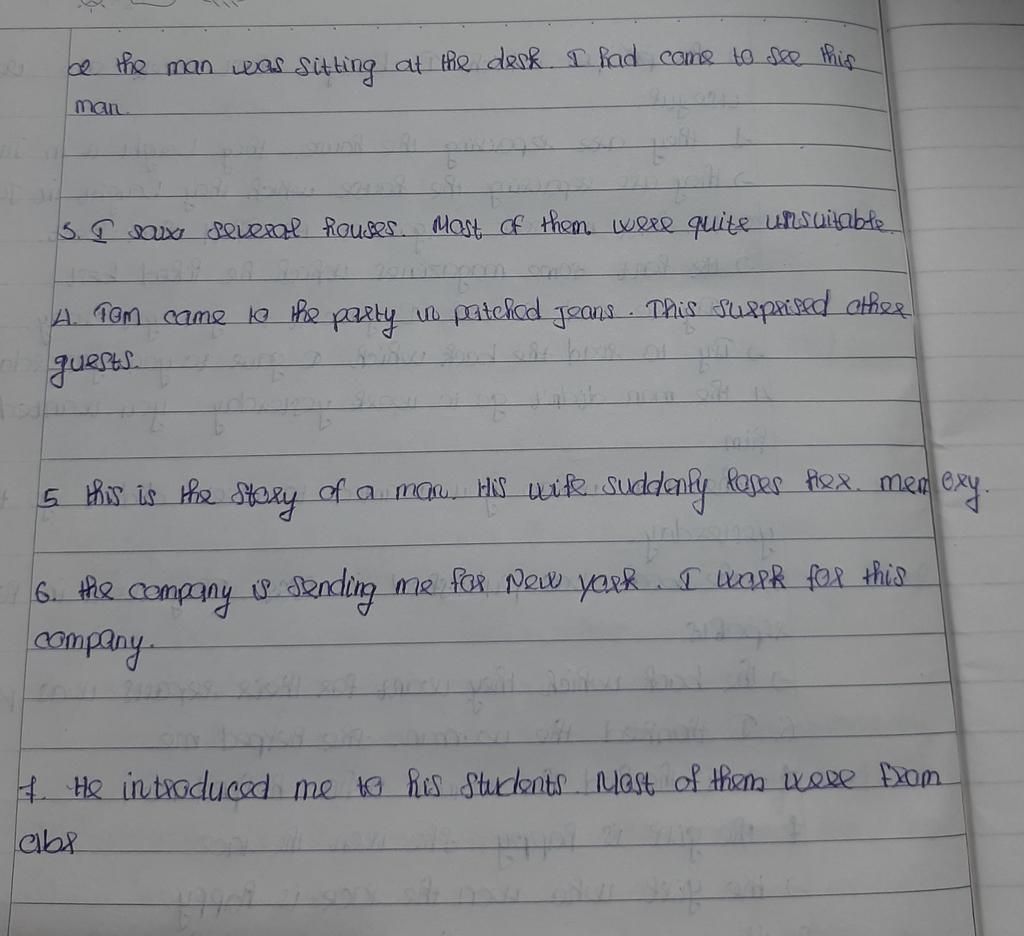 be the man was sitting at the desk. I had come to see this
man.
3. I saw several houses. Most of them were quite unsuitable.
4. Tom came to the party in patched jeans. This surprised other
guests.
5 this is the story of a man. His wife suddenly loses her. memory.
6. the company is sending me for New york. I work for this
company.
7. He introduced me to his students. Most of them were from
abr